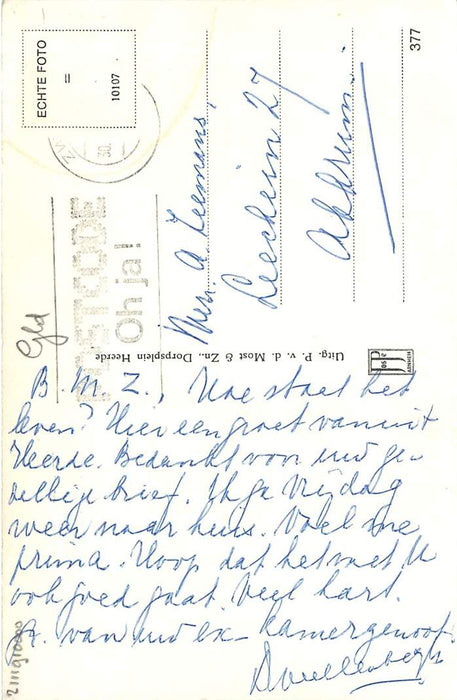 ECHTE FOTO
=
10107
377
30.
POSTCODE
Oh ja!
Mevr. A. Zeemans,
Leechlân 27
Akkrum.
Gld
Uitg. P. v. d. Most & Zn., Dorpsplein Heerde
JP
ARNHEM
B.M.Z., Hoe staat het
leven? Hier een groet vanuit
Heerde. Bedankt voor uw ge-
zellige brief. Ik ga Vrijdag
weer naar huis. Voel me
prima. Hoop dat het met U
ook goed gaat. Veel hart.
gr. van uw ex-kamergenoot